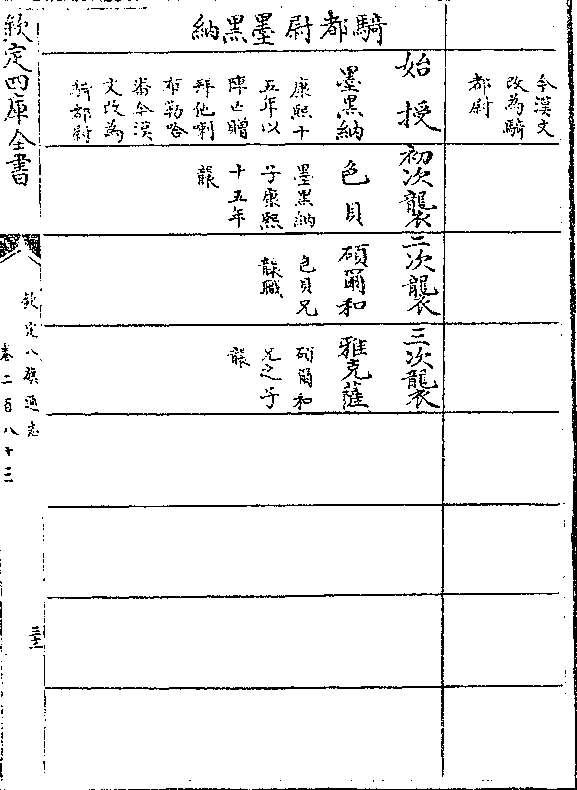 今漢文
改為騎
都尉
騎都尉墨黑納
始授
墨黑納
康熙十
五年以
陣亡贈
拜他喇
布勒哈
番今漢
文改為
騎都尉
初次襲
色貝
墨黑納
子康熙
十五年
襲
二次襲
碩爾和
色貝兄
襲職
三次襲
雅克薩
碩爾和
兄之子
襲
欽定四庫全書
欽定八旗通志
卷二百八十三